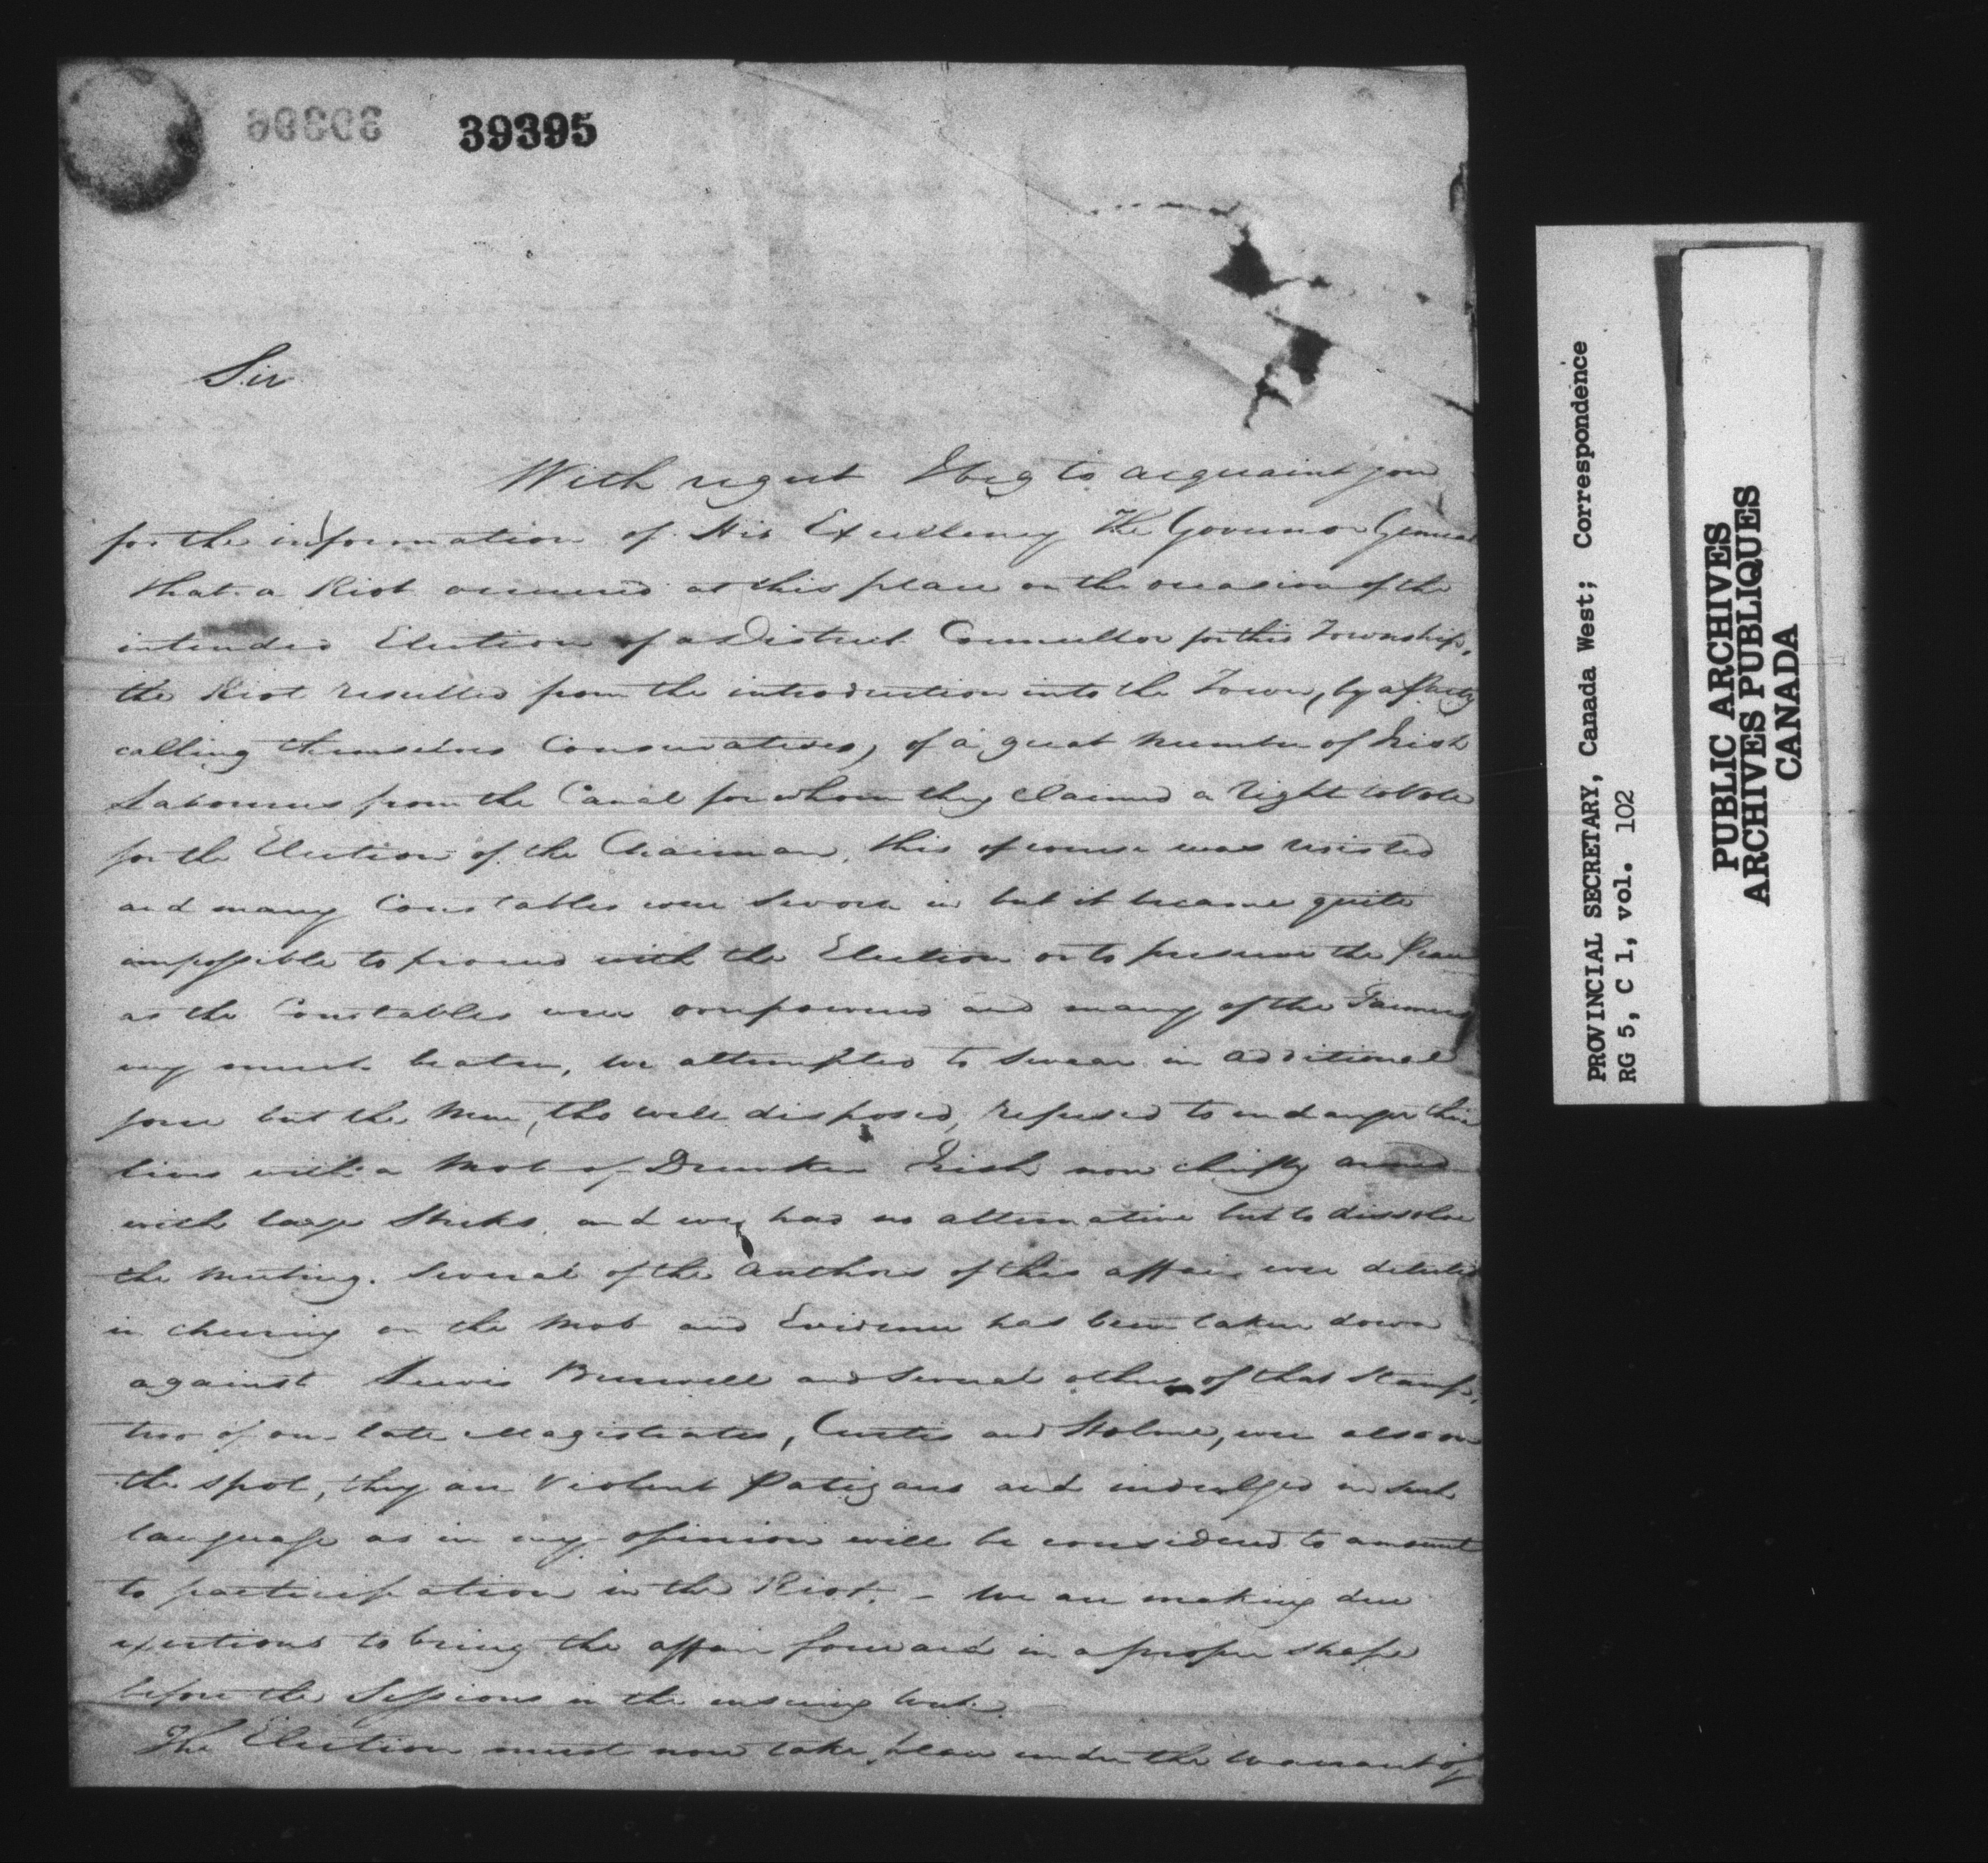 39395
Sir
With regret I beg to acquaint you
for the information of His Excellency The Governor General
that a Riot occurred at this place on the occasion of the
intended Election of a District Councillor for this Township,
the Riot resulted from the introduction into the Town, by a Party
calling themselves Conservatives, of a great number of Irish
Labourers from the Canal for whom they claimed a right to Vote
for the Election of the Chairman, this of course was resisted
and many Constables were Sworn in but it became quite
impossible to proceed with the Election or to preserve the Peace
as the Constables were overpowered and many of the Farmers
very much beaten, we attempted to Swear in additional
force but the Men, tho well disposed, refused to endanger their
lives with a Mob of Drunken Irish now chiefly armed
with large Sticks, and we had no alternative but to dissolve
the meeting. Several of the Authors of this affair were detected
in cheering on the Mob and Evidence has been taken down
against Lewis Burwell and Several others of that Stamp,
two of our late Magistrates, Curtis and Holme, were also on
the spot, they are Violent Patizans and indulged in such
language as in my opinion will be considered to amount
to participation in the Riot. - We are making due
exertions to bring the affair forward in a proper shape
before the Sessions in the ensuing week.
The Election must now take place under the Warrant of
PROVINCIAL SECRETARY, Canada West; Correspondence
RG 5, C 1, vol. 102
PUBLIC ARCHIVES
ARCHIVES PUBLIQUES
CANADA